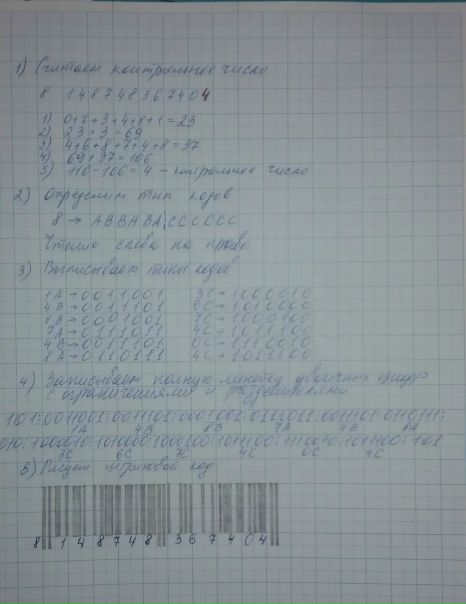 1) Считаем контрольное число
8 148748367404
1) 0+7+3+4+8+1=23
2) 23*3=69
3) 4+6+8+7+4+8=37
4) 69+37=106
5) 110-106=4 - контрольное число
2) Определим тип кодов
8 → ABBABA CCCCCC
Чтение слева на право
3) Выписываем типы кодов
1A→0011001 3C→1000010
4B→0011101 6C→1010000
8B→0001001 7C→1000100
7A→0111011 4C→1011100
4B→0011101 0C→1110010
8A→0110111 4C→1011100
4) Записываем полную линейку двоичных цифр
с ограничениями и разделителями
101:0011001:0011101:0001001:0111011:0011101:0110111:
1A 4B 8B 7A 4B 8A
010:1000010:1010000:1000100:1011100:1110010:1011100:101
3C 6C 7C 4C 0C 4C
5) Рисуем штриховой код
8 148748 367404